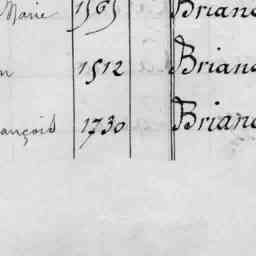 Marie 1565 Brianc
n 1512 Brianc
ançois 1730 Brianc